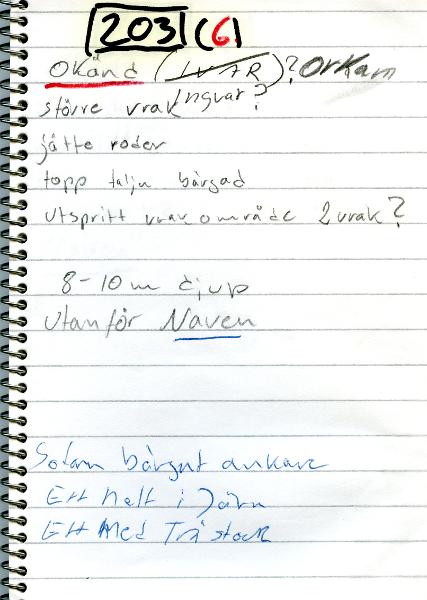 203 (6)
Okänd (IVAR)? Orkan
större vrak Ingvar?
jätte roder
topp talja bärgad
utspritt vrakområde 2 vrak?
8-10 m djup
utanför Naven
bärgat ankare
Ett helt i Järn
Ett Med Trä stock